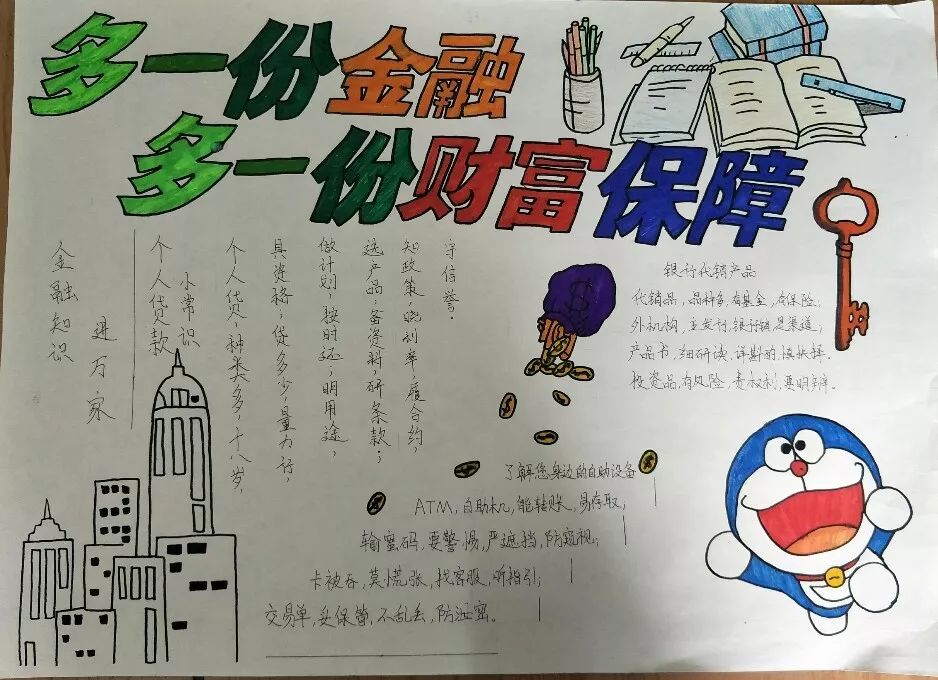 多一份金融
多一份财富保障
金融知识
进万家
个人贷款
小常识
个人贷，种类多，十八岁，
具资格；贷多少，量力行，
做计划，按时还；明用途，
选产品，备资料，研条款；
知政策，晓利率，履合约，
守信誉.
银行代销产品
代销品，品种多，有基金，有保险；
外机构，主发行，银行销，是渠道；
产品书，细研读，详斟酌，慎抉择.
投资品，有风险，责权利，要明辨.
了解您身边的自助设备
ATM，自助机，能转账，易存取；
输密码，要警惕，严遮挡，防窥视；
卡被吞，莫慌张，找客服，听指引；
交易单，妥保管，不乱丢，防泄密。